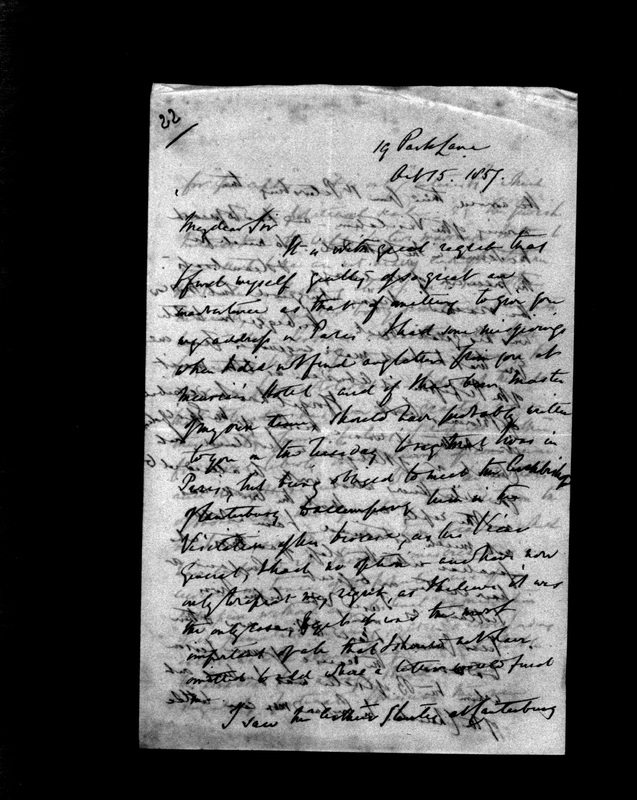 22
19 Park Lane
Oct 15. 1857.
My dear Sir
It is with great regret that
I find myself guilty of so great an
inadvertence as that of omitting to give you
my address in Paris. I had some misgivings
when I did not find a letter from you at
Meurice's Hotel, and if I had been master
of my own time, should have probably written
to you on the Tuesday to say that I was in
Paris, but being obliged to meet the Archbishop
of Canterbury & accompany him in the
Visitation of his Diocese, as his Vicar
General, I had no option - and have now
only to repeat my regret, as I believe it was
the only case, & yet it was the most
important of all that I should not have
omitted to add where a letter would find
I saw the at Canterbury